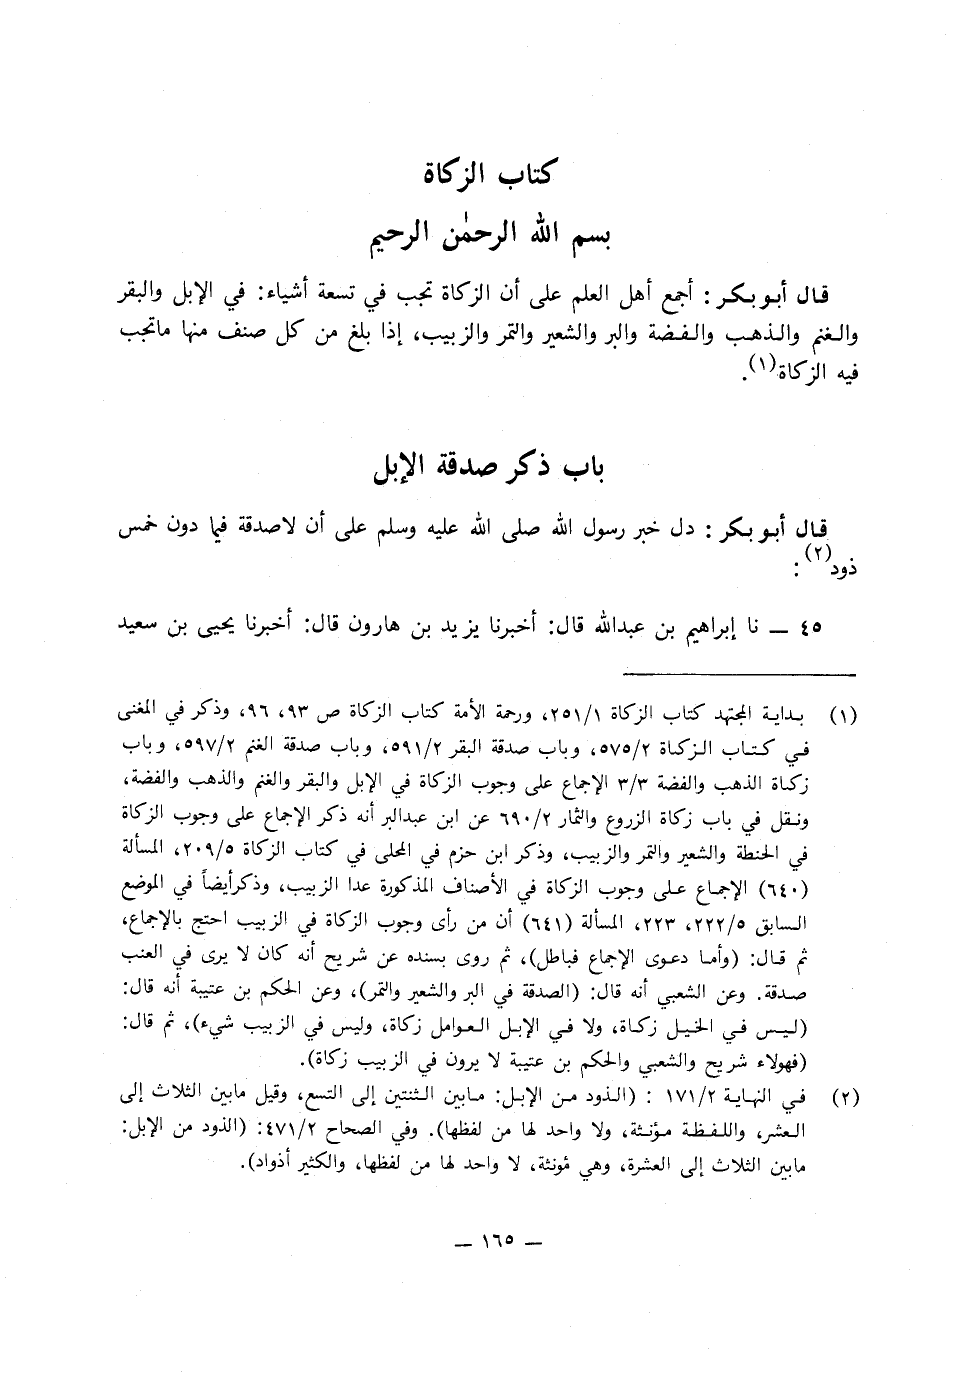 كتاب الزكاة
بسم الله الرحمٰن الرحيم
قال أبو بكر : أجمع أهل العلم على أن الزكاة تجب في تسعة أشياء: في الإبل والبقر
والغنم والذهب والفضة والبر والشعير والتمر والزبيب، إذا بلغ من كل صنف منها ماتجب
فيه الزكاة(١).
باب ذكر صدقة الإبل
قال أبو بكر : دل خبر رسول الله صلى الله عليه وسلم على أن لاصدقة فيما دون خمس
ذود(٢) :
٤٥ ــ نا إبراهيم بن عبدالله قال: أخبرنا يزيد بن هارون قال: أخبرنا يحيى بن سعيد
(١) بداية المجتهد كتاب الزكاة ٢٥١/١، ورحمة الأمة كتاب الزكاة ص ٩٣، ٩٦، وذكر في المغنى
في كتاب الزكاة ٥٧٥/٢، وباب صدقة البقر ٥٩١/٢، وباب صدقة الغنم ٥٩٧/٢، وباب
زكاة الذهب والفضة ٣/٣ الإجماع على وجوب الزكاة في الإبل والبقر والغنم والذهب والفضة،
ونقل في باب زكاة الزروع والثمار ٦٩٠/٢ عن ابن عبدالبر أنه ذكر الإجماع على وجوب الزكاة
في الحنطة والشعير والتمر والزبيب، وذكر ابن حزم في المحلى في كتاب الزكاة ٢٠٩/٥، المسألة
(٦٤٠) الإجماع على وجوب الزكاة في الأصناف المذكورة عدا الزبيب، وذكرأيضاً في الموضع
السابق ٢٢٢/٥، ٢٢٣، المسألة (٦٤١) أن من رأى وجوب الزكاة في الزبيب احتج بالإجماع،
ثم قال: (وأما دعوى الإجماع فباطل)، ثم روى بسنده عن شريح أنه كان لا يرى في العنب
صدقة. وعن الشعبي أنه قال: (الصدقة في البر والشعير والتمر)، وعن الحكم بن عتيبة أنه قال:
(ليس في الخيل زكاة، ولا في الإبل العوامل زكاة، وليس في الزبيب شيء)، ثم قال:
(فهولاء شريح والشعبي والحكم بن عتيبة لا يرون في الزبيب زكاة).
(٢) في النهاية ١٧١/٢ : (الذود من الإبل: مابين الثنتين إلى التسع، وقيل مابين الثلاث إلى
العشر، واللفظة مؤنثة، ولا واحد لها من لفظها). وفي الصحاح ٤٧١/٢: (الذود من الإبل:
مابين الثلاث إلى العشرة، وهي مؤنثة، لا واحد لها من لفظها، والكثير أذواد).
ــ ١٦٥ ــ